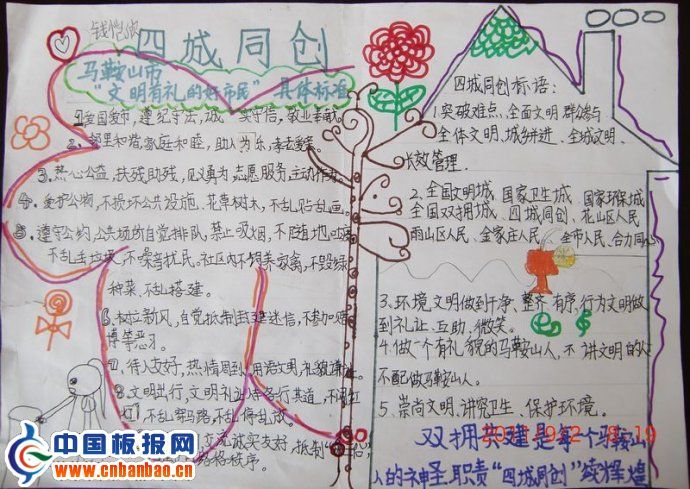 钱恺
四城同创
马鞍山市
“文明有礼的好市民”具体标准
1、爱国爱市，遵纪守法，诚实守信，敬业奉献。
2、邻里和谐，家庭和睦，助人为乐，孝老爱亲。
3、热心公益，扶残助残，见义勇为，志愿服务，主动作
4、爱护公物，不损坏公共设施，花草树木，不乱贴乱画。
5、遵守公约，公共场所自觉排队，禁止吸烟，不随地吐
不乱丢垃圾，不噪音扰民。社区内不饲养家禽，不毁绿
种菜，不乱搭建。
6、树立新风，自觉抵制封建迷信，不参加赌
博等恶习。
7、待人友好，热情周到，用语文明，礼貌谦
8、文明出行，文明礼让，各行其道，不闯红
灯，不乱穿马路，不乱停乱放。
交流诚实友好，抵制
秩序。
四城同创标语：
1、突破难点、全面文明 群众参与
全体文明、城乡并进、全城文明、
长效管理.
2、全国文明城、国家卫生城、国家环保城
全国双拥城、四城同创、花山区人民
雨山区人民、金家庄人民、全市人民、合力同心
3、环境文明做到干净、整齐有序，行为文明做
到礼让、互助、微笑。
4、做一个有礼貌的马鞍山人，不讲文明的人
不配做马鞍山人。
5、崇尚文明、讲究卫生、保护环境。
双拥共建是每个马鞍山
人的神圣职责“四城同创”续辉煌
中国板报网
www.cnbanbao.cn